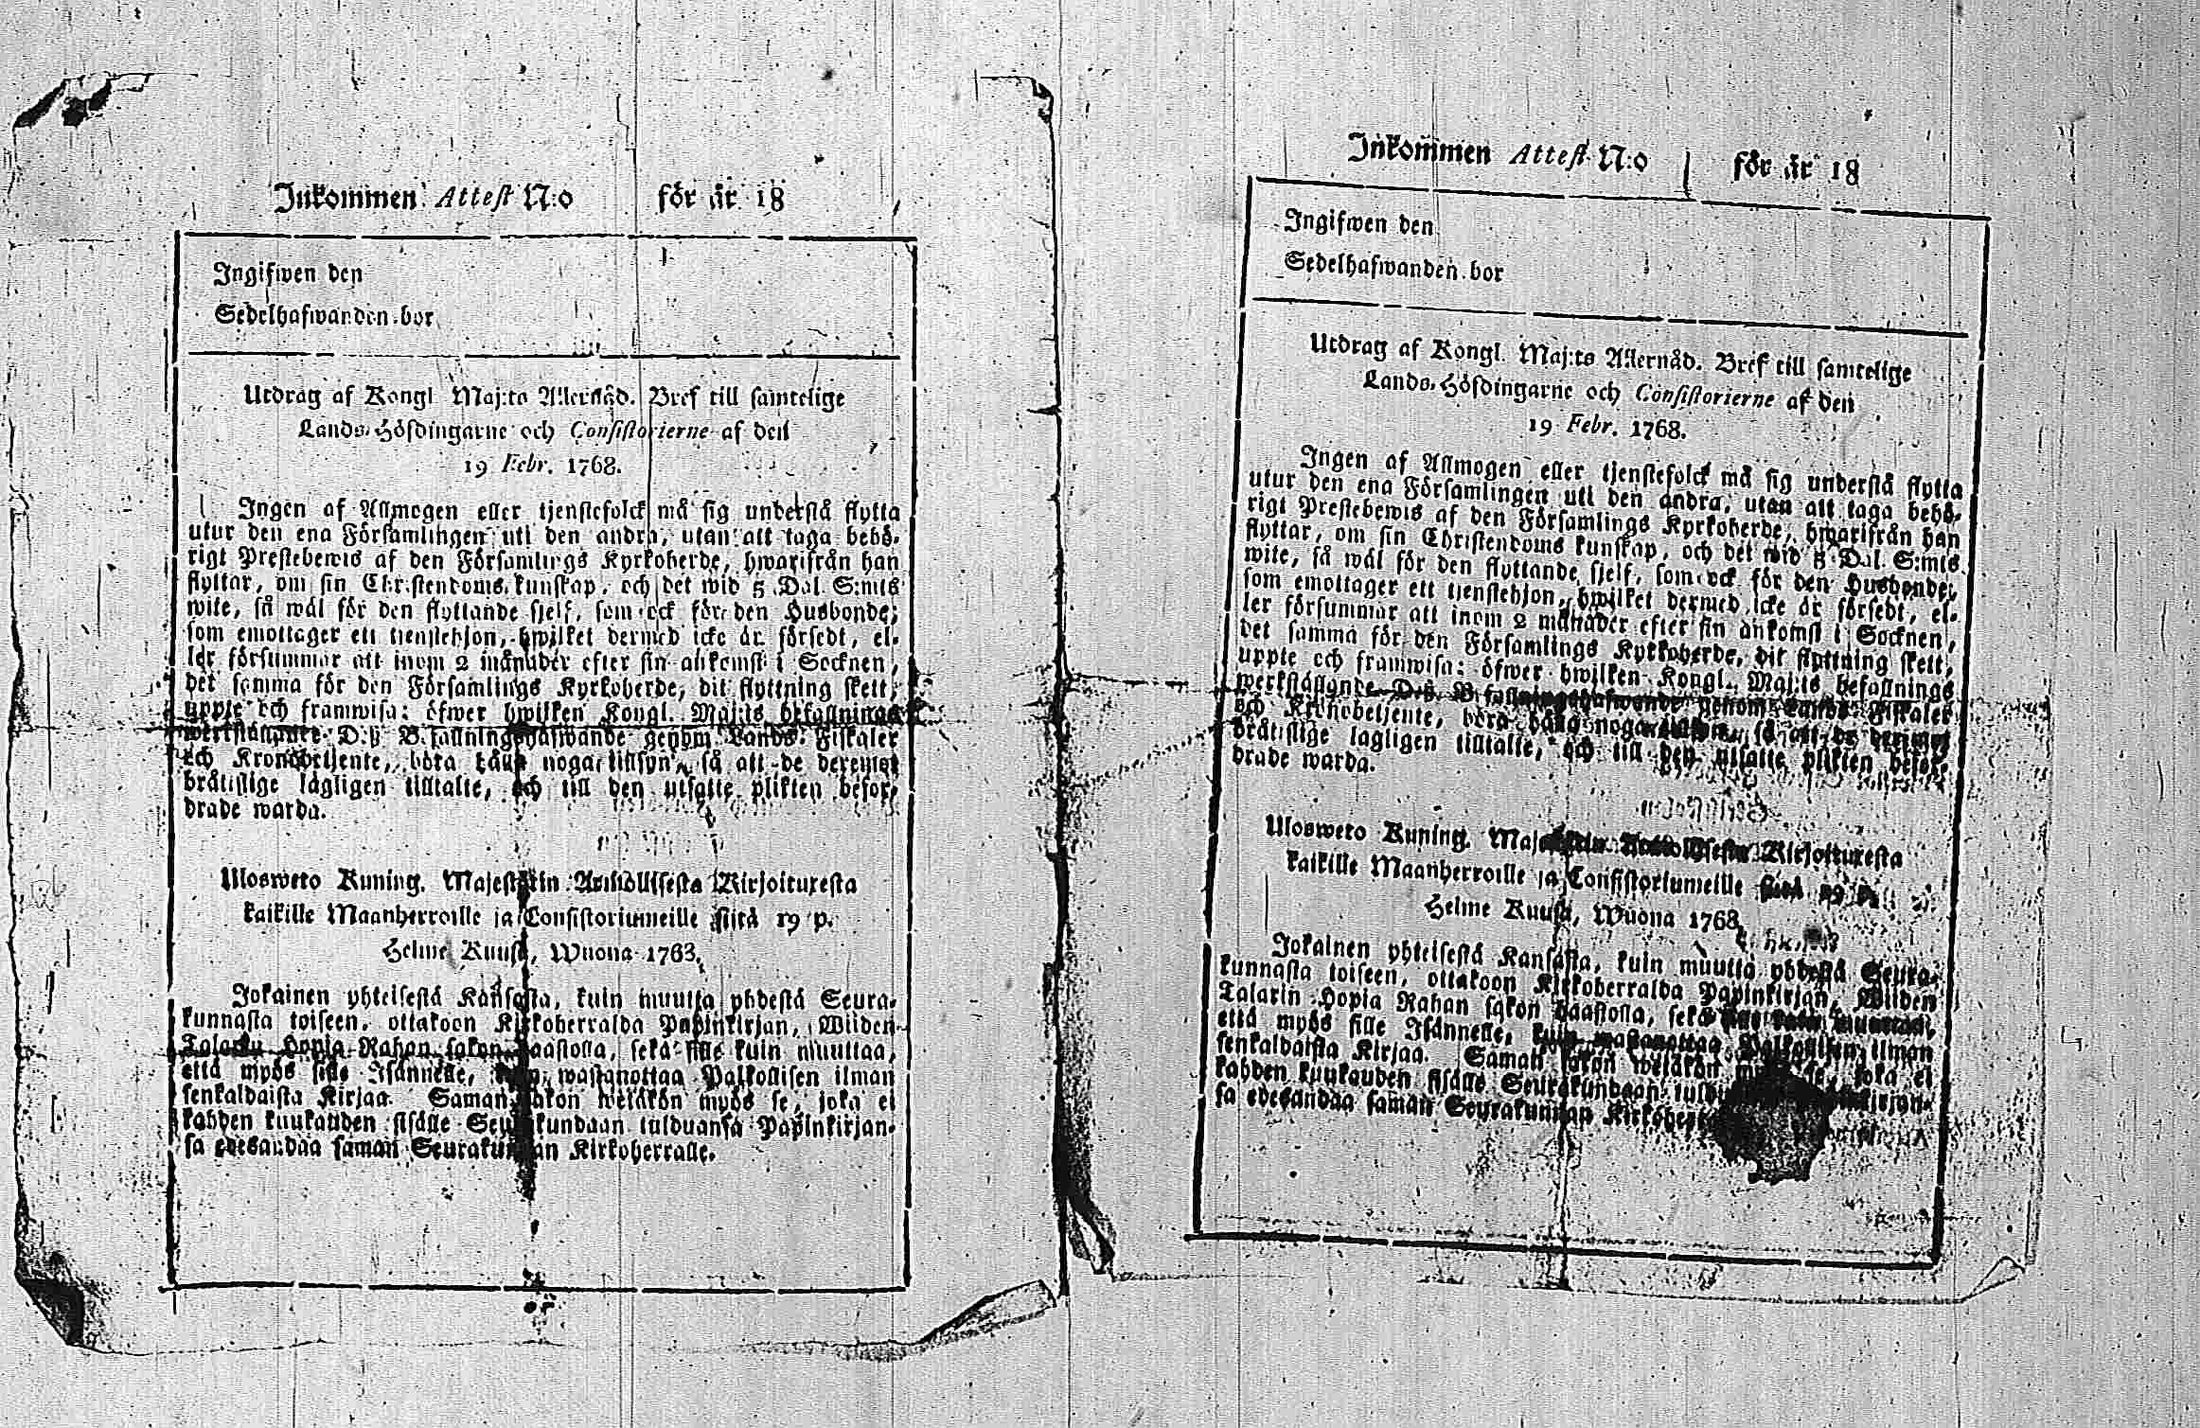 Inkommen Attest N:o för år 18
Ingifwen den
Sedelhafwanden bor
Utdrag af Kongl. Maj:ts Allernåd. Bref till samtelige
Lands-Höfdingarne och Consistorierne af den
19 Febr. 1768.
Ingen af Allmogen eller tjenstefolck må sig understå flytta
utur den ena Församlingen uti den andra, utan att taga behö-
rigt Prestebewis af den Församlings Kyrkoherde, hwarifrån han
flyttar, om sin Christendoms kunskap, och det wid 5 Dal. S:mts
wite, så wäl för den flyttande sjelf, som ock för den Husbonde,
som emottager ett tjenstehjon, hwilket dermed icke är försedt, el-
ler försummar att inom 2 månader efter sin ankomst i Socknen,
det samma för den Församlings Kyrkoherde, dit flyttning skett,
uppte och framwisa: öfwer hwilken Kongl. Maj:ts befallnings
werkställande D:ß Befallningshafwande genom Lands-Fiskaler
och Kronobetjente, böra hålla noga tillsyn, så att de deremot
brättslige lagligen tilltalte, och till den utsatte plikten befor-
drade warda.
Ulosweto Kuning. Majestetin Armollisesta Kirjoituxesta
kaikille Maanherroille ja Consistoriumeille siitä 19 p.
Helme Kuusa, Wuona 1768.
Jokainen yhteisestä Kansasta, kuin muutta yhdestä Seura-
kunnasta toiseen, ottakoon Kirkoherralda Papinkirjan, Wiiden
Talarin Hopia Rahan sakon haastolla, sekä sille kuin muuttaa,
että myös sille Isännelle, kuin wastanottaa Palkollisen ilman
senkaldaista Kirjaa. Saman sakon wetäkön myös se, joka ei
kahden kuukauden sisälle Seurakundaan tulduansa Papinkirjan-
sa edesandaa saman Seurakunnan Kirkoherralle.
Inkommen Attest N:o för år 18
Ingifwen den
Sedelhafwanden bor
Utdrag af Kongl. Maj:ts Allernåd. Bref till samtelige
Lands-Höfdingarne och Consistorierne af den
19 Febr. 1768.
Ingen af Allmogen eller tjenstefolck må sig understå flytta
utur den ena Församlingen uti den andra, utan att taga behö-
rigt Prestebewis af den Församlings Kyrkoherde, hwarifrån han
flyttar, om sin Christendoms kunskap, och det wid 5 Dal. S:mts
wite, så wäl för den flyttande sjelf, som ock för den Husbonde,
som emottager ett tjenstehjon, hwilket dermed icke är försedt, el-
ler försummar att inom 2 månader efter sin ankomst i Socknen,
det samma för den Församlings Kyrkoherde, dit flyttning skett,
uppte och framwisa: öfwer hwilken Kongl. Maj:ts befallnings
werkställande D:ß Befallningshafwande genom Lands-Fiskaler
och Kronobetjente, böra hålla noga så att de deremot
brättslige lagligen tilltalte, och till den utsatte plikten befor-
drade warda.
Ulosweto Kuning. Kirjoituxesta
kaikille Maanherroille ja Consistoriumeille siitä 19 p.
Helme Kuusa, Wuona 1768.
Jokainen yhteisestä Kansasta, kuin muutta yhdestä Seura-
kunnasta toiseen, ottakoon Kirkoherralda Papinkirjan, Wiiden
Talarin Hopia Rahan sakon haastolla, sekä sille kuin muuttaa,
että myös sille Isännelle, kuin wastanottaa Palkollisen ilman
senkaldaista Kirjaa. Saman sakon wetäkön myös se, joka ei
kahden kuukauden sisälle Seurakundaan
sa edesandaa saman Seurakunnan